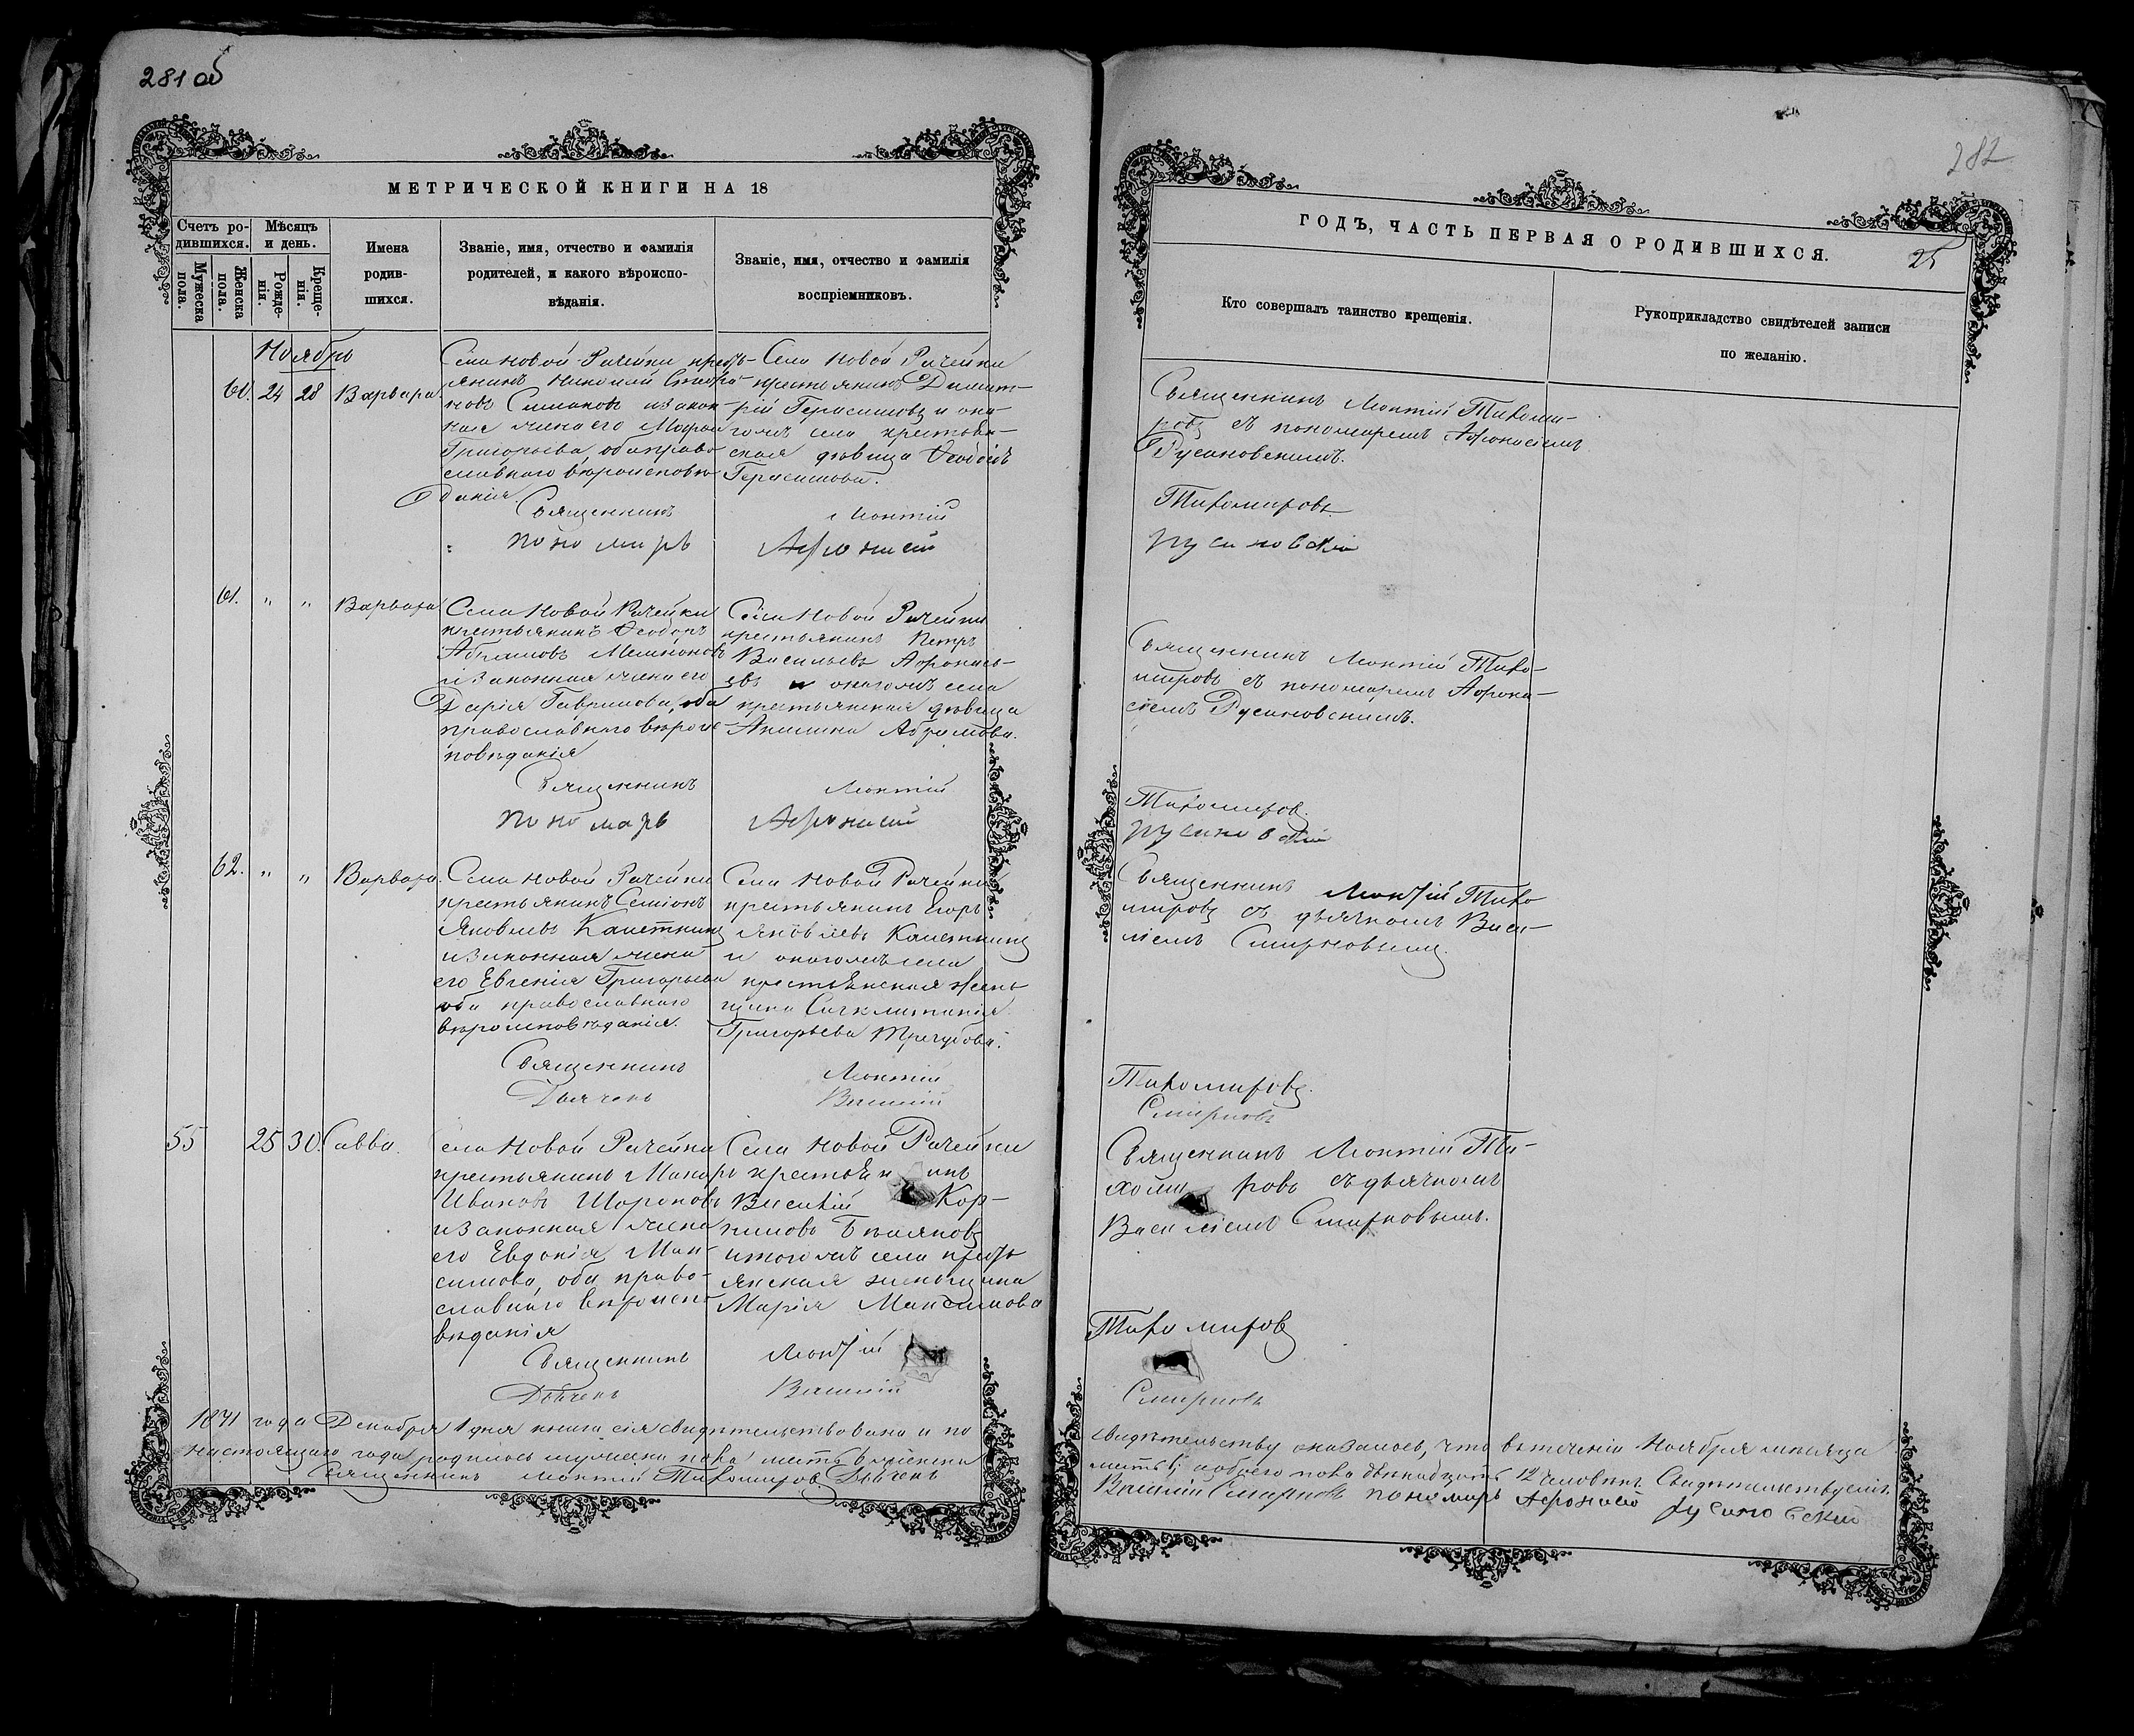 281 об
МЕТРИЧЕСКОЙ КНИГИ НА 18
Счетъ ро-
дившихся.
Мѣсяцъ
и день.
Мужеска
пола.
Женска
пола.
Рожде-
нія.
Креще-
нія.
Имена
родив-
шихся.
Званіе, имя, отчество и фамилія
родителей, и какого вѣроиспо-
вѣданія.
Званіе, имя, отчество и фамилія
воспріемниковъ.
Ноябрь
60. 24 28 Варвара
Села Новой Рачейки кресть-
янинъ Николай
и закон-
ная жена его
Григорьева, оба право-
славнаго вѣроисповѣ-
данія.
Села Новой Рачейки
крестьянинъ Димит-
рій Герасимовъ и она-
гожъ села крестьян-
ская дѣвица Ѳеодосія
Герасимова.
Священникъ Леонтій
Пономарь Афонасій
61. " " Варвара
Села Новой Рачейки
крестьянинъ Ѳеодоръ
Абрамовъ
и законная жена его
Дарія Гаврилова, оба
православнаго вѣроис-
повѣданія
Села Новой Рачейки
крестьянинъ Петръ
Васильевъ Афонась-
евъ и онагожъ села
крестьянская дѣвица
Акилина Абрамова.
Священникъ Леонтій
Пономарь Афонасій
62. " " Варвара.
Села Новой Рачейки
крестьянинъ Семіонъ
Яковлевъ
и законная жена
его Евгенія Григорьева
оба православнаго
вѣроисповѣданія.
Села Новой Рачейки
крестьянинъ Егоръ
Яковлевъ
и онагожъ села
крестьянская жен-
щина
Григорьева
Священникъ Леонтій
Дьячекъ Василій
55 25 30. Савва.
Села Новой Рачейки
крестьянинъ Макаръ
Ивановъ Шороновъ
и законная жена
его Евдокія Мак-
симова, оба право-
славнаго вѣроиспо-
вѣданія
Села Новой Рачейки
крестьянинъ
Василій Кор-
ниловъ
и тогожъ села кресть-
янская женьщина
Марія Максимова
Священникъ Леонтій
Дьячекъ Василій
1871 года Декабря 1 дня книга сія свидѣтельствована и по
настоящаго года родилось мужеска пола шесть 6 женска
Священникъ Леонтій Тихомировъ Дьячекъ
282
ГОДЪ, ЧАСТЬ ПЕРВАЯ О РОДИВШИХСЯ.
25
Кто совершалъ таинство крещенія.
Рукоприкладство свидѣтелей записи
по желанію.
Священникъ Леонтій Тихоми-
ровъ съ пономаремъ Афонасіемъ
Русановскимъ.
Тихомировъ.
Русановскій
Священникъ Леонтій Тихо-
мировъ съ пономаремъ Афона-
сіемъ Русановскимъ.
Тихомировъ.
Русановскій
Священникъ Леонтій Тихо
мировъ съ дьячкомъ Васи-
ліемъ Смирновымъ.
Тихомировъ.
Смирновъ
Священникъ Леонтій Ти-
хомировъ съ дьячкомъ
Василіемъ Смирновымъ.
Тихомировъ
Смирновъ
свидѣтельству оказалось, что въ теченіи Ноября мѣсяца
шесть 6; обоего пола двѣнадцать 12 человѣкъ. Свидѣтельствуемъ.
Василій Смирновъ пономарь Афонасій Русановскій